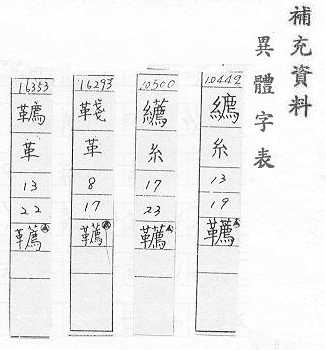 補充資料
異體字表
10449
糸
13
19
韉
10500
糸
17
23
韉
16293
革
8
17
韉
16353
革
13
22
韉